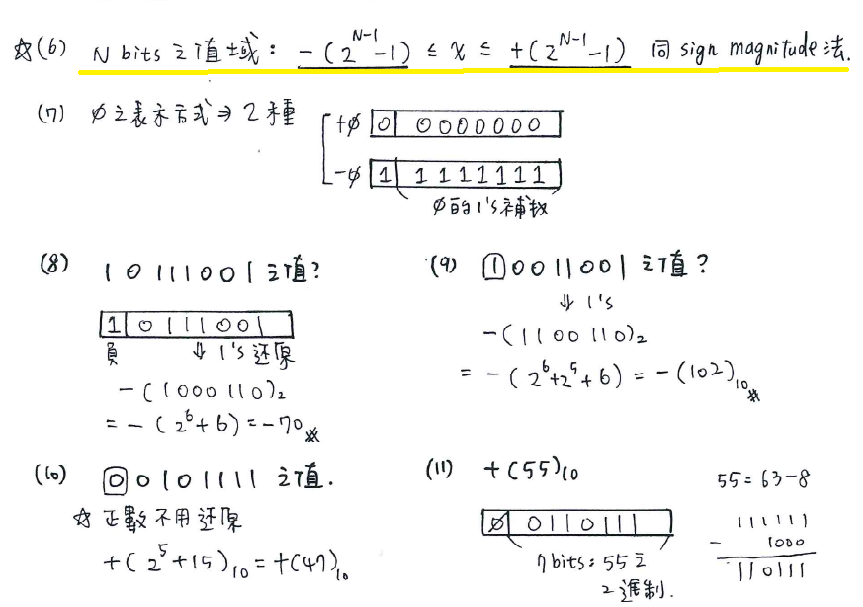 ☆(6) N bits 之值域: -(2^(N-1)-1) ≤ x ≤ +(2^(N-1)-1) 同 sign magnitude 法.
(7) ∅之表示方式 → 2種
+∅ 0 0000000
-∅ 1 1111111
∅的1's補數
(8) 10111001 之值?
1 0111001
負 ⇓ 1's 還原
-(1000110)₂
= -(2⁶+6) = -70
(9) 10011001 之值?
⇓ 1's
-(1100110)₂
= -(2⁶+2⁵+6) = -(102)₁₀
(10) 00101111 之值.
☆ 正數不用还原
+(2⁵+15)₁₀ = +(47)₁₀
(11) +(55)₁₀
∅ 0110111
7 bits: 55 之
2進制.
55 = 63-8
111111
- 1000
110111